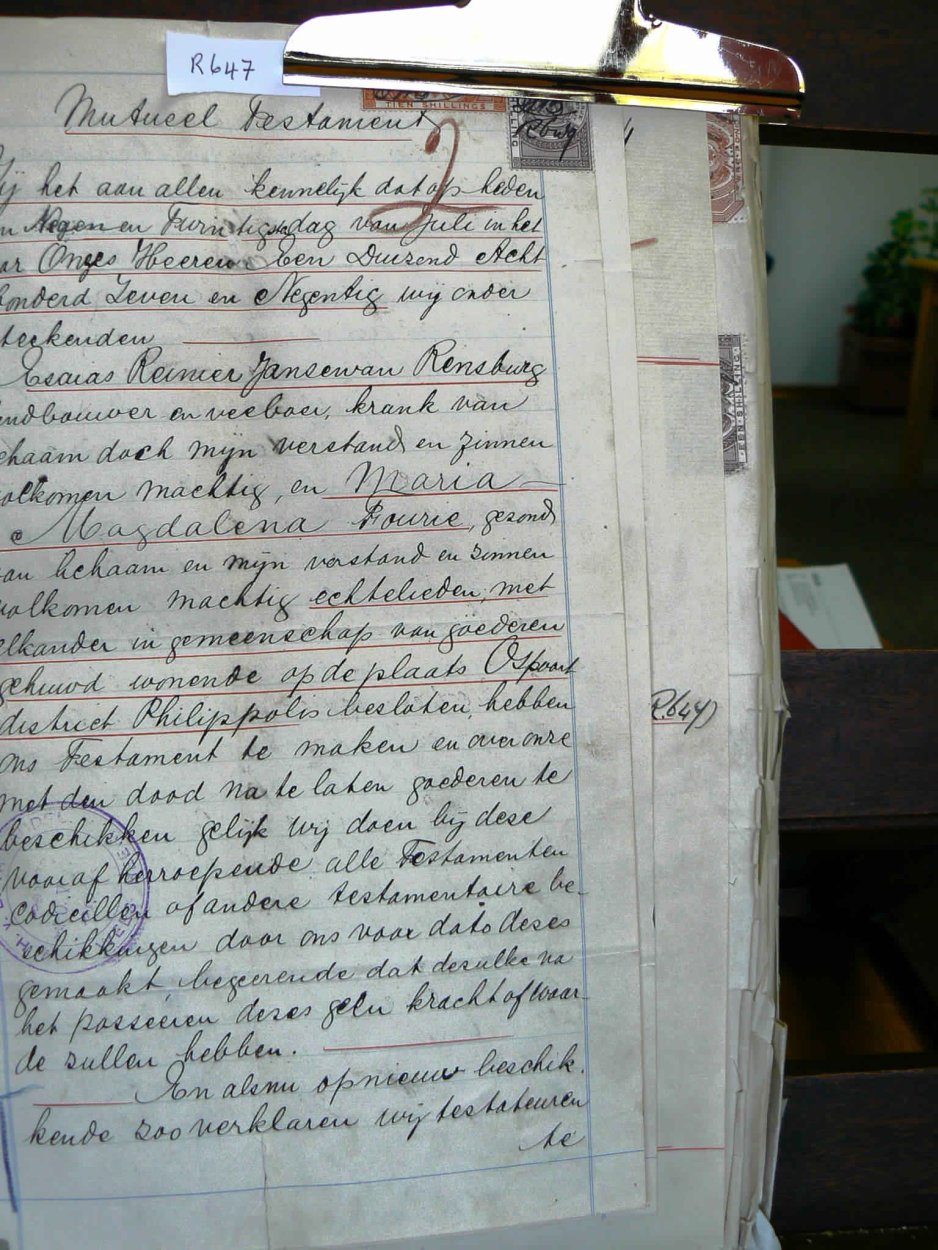 R647
TIEN SHILLINGS
Mutueel Testament
2
ij het aan allen kennelijk dat op heden
n Negen en Twintigsdag van Juli in het
ar Onzes Heeren Een Duizend Acht
onderd Zeven en Negentig wij onder
teekenden
Esaias Reinier Jansevan Rensburg
ndbouwer en veeboer, krank van
chaam doch mijn verstand en zinnen
olkomen machtig, en Maria
Magdalena Fourie, gezond
an lichaam en mijn verstand en zinnen
volkomen machtig echtelieden, met
elkander in gemeenschap van goederen
gehuwd wonende op de plaats Ospoort
district Philippolis besloten, hebben
ons Testament te maken en over onze
met den dood na te laten goederen te
beschikken gelijk wij doen bij dese
vooraf herroepende alle Testamenten
codicillen of andere testamentaire be-
schikkingen door ons voor dato deses
gemaakt, begeerende dat deselke na
het passeeren deses geen kracht of waar-
de zullen hebben.
En alsnu opnieuw beschik.
kende zoo verklaren wij testateuren
te
EEN SHILLING
R647)